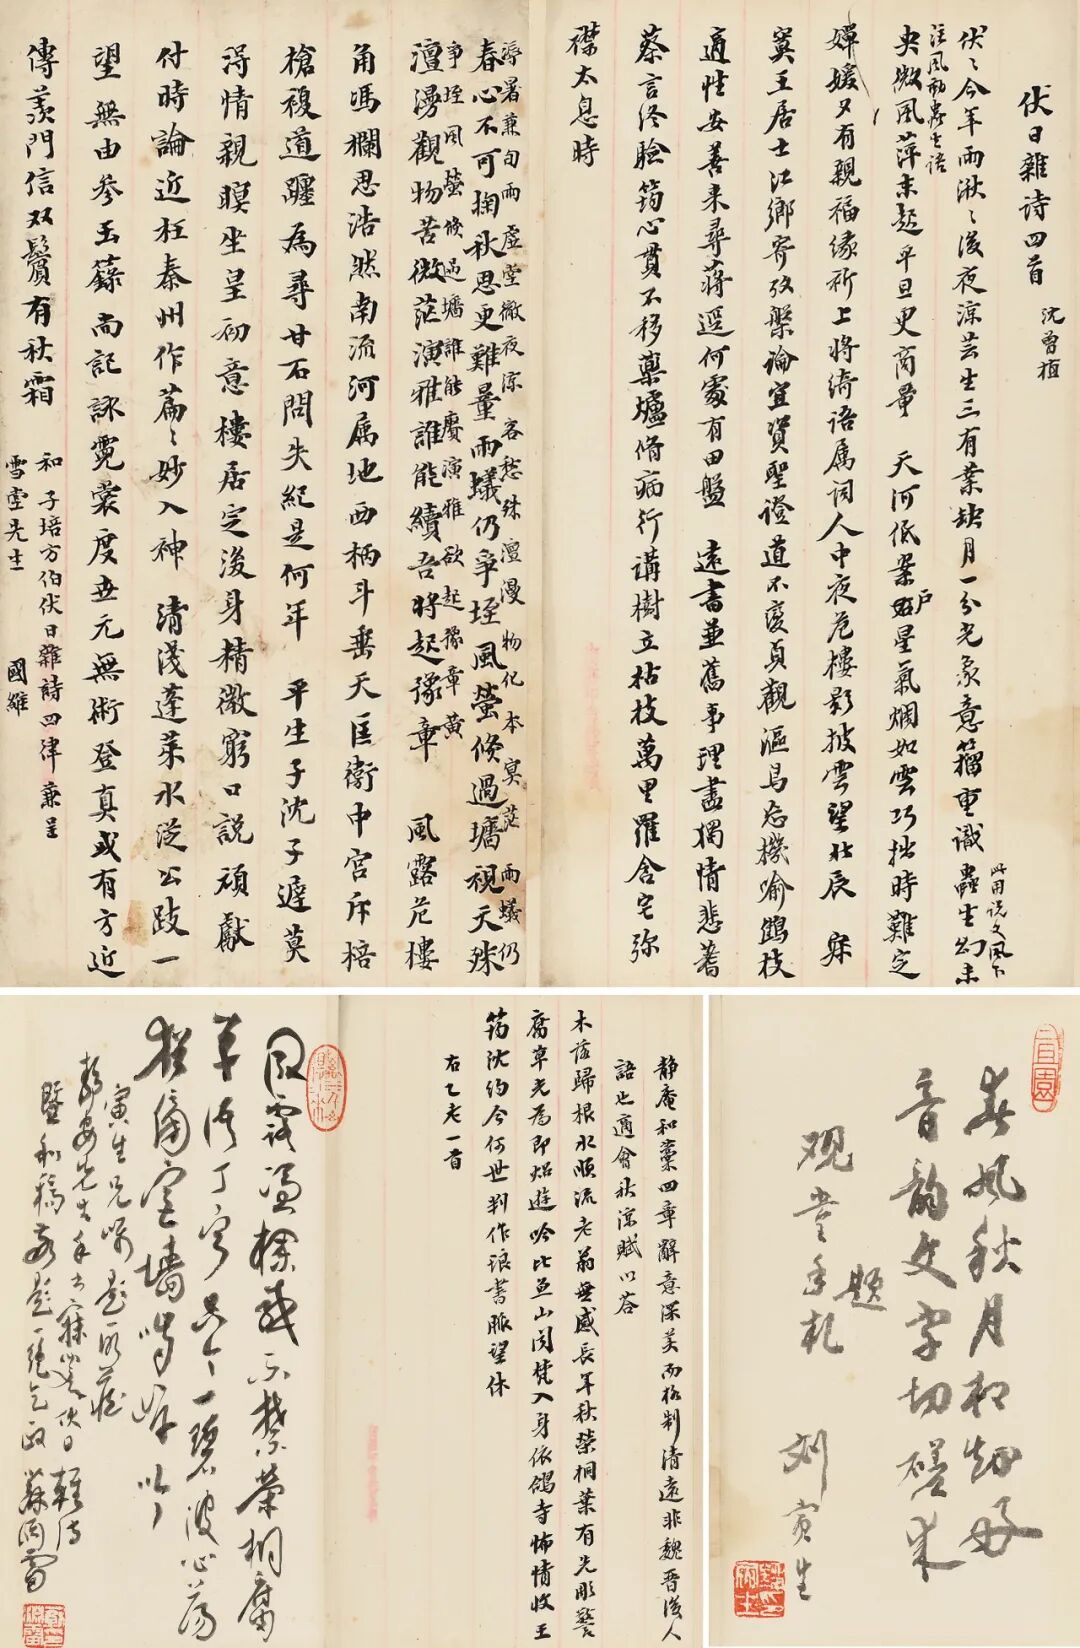 伏日雜詩四首
沈曾植
伏〻今年雨湫〻後夜涼芸生三有業缺月一分光象意籀重識蟲生幻未
此用說文風下
注風動蟲生語
央微風萍末起平旦更商量 天河低案戶星氣爛如雲巧拙時難定
嬋媛夕有親福緣祈上將綺語属詞人中夜危樓影披雲望北辰 寐
寞王居士江鄉寄攷槃論宜資聖證道不變貞觀漚鳥忘機喻鵾枝
適性安善来尋蔣逕何處有田盤 遠書並舊事理盡獨情悲蓍
蔡言終驗筠心貫不移藥爐脩病行講樹立枯枝萬里羅含宅弥
襟太息時
溽暑兼旬雨虛堂徹夜涼客愁殊澶漫物化本冥茫雨蟻仍
爭垤風螢倏過墻誰能賡演雅欲起豫章黄
春心不可掬秋思更難量雨蟻仍爭垤風螢倏過墻視天殊
澶漫觀物苦微茫演雅誰能續吾將起豫章 風露危樓
角馮欄思浩然南流河属地西柄斗垂天匡衛中宮斥棓
槍複道纏為尋甘石問失紀是何年 平生子沈子遲莫
淂情親瞑坐皇初意樓居定後身精微窮口說頑獻
付時論近枉秦州作篇〻妙入神 清淺蓬莱水従公跂一
望無由參玉籙尚記詠霓裳度世元無術登真或有方近
傳羨門信双鬢有秋霜
和 子培方伯伏日雜詩四律兼呈
雪堂先生 國維
春風秋月初知好
音韵文字切磋来
题
观堂手札
刘寅生
静庵和藁四章辭意深美而格制清遠非魏晉後人
語也適會秋涼賦以荅
木落歸根水順流老翁無感長年秋榮桐葉有先彫警
腐草光為即炤遊吟比魚山闻梵入身依鴿寺怖情收王
筠沈約今何世判作琅書脈望休
右乙老一首
風露憑欄感不禁榮桐腐
草语丁寧只今一碧波心荡
寅生兄嘱题所藏
静安先生手书寐叟伏日雜诗
暨和稿 敬题一绝乞政 蘇渊雷